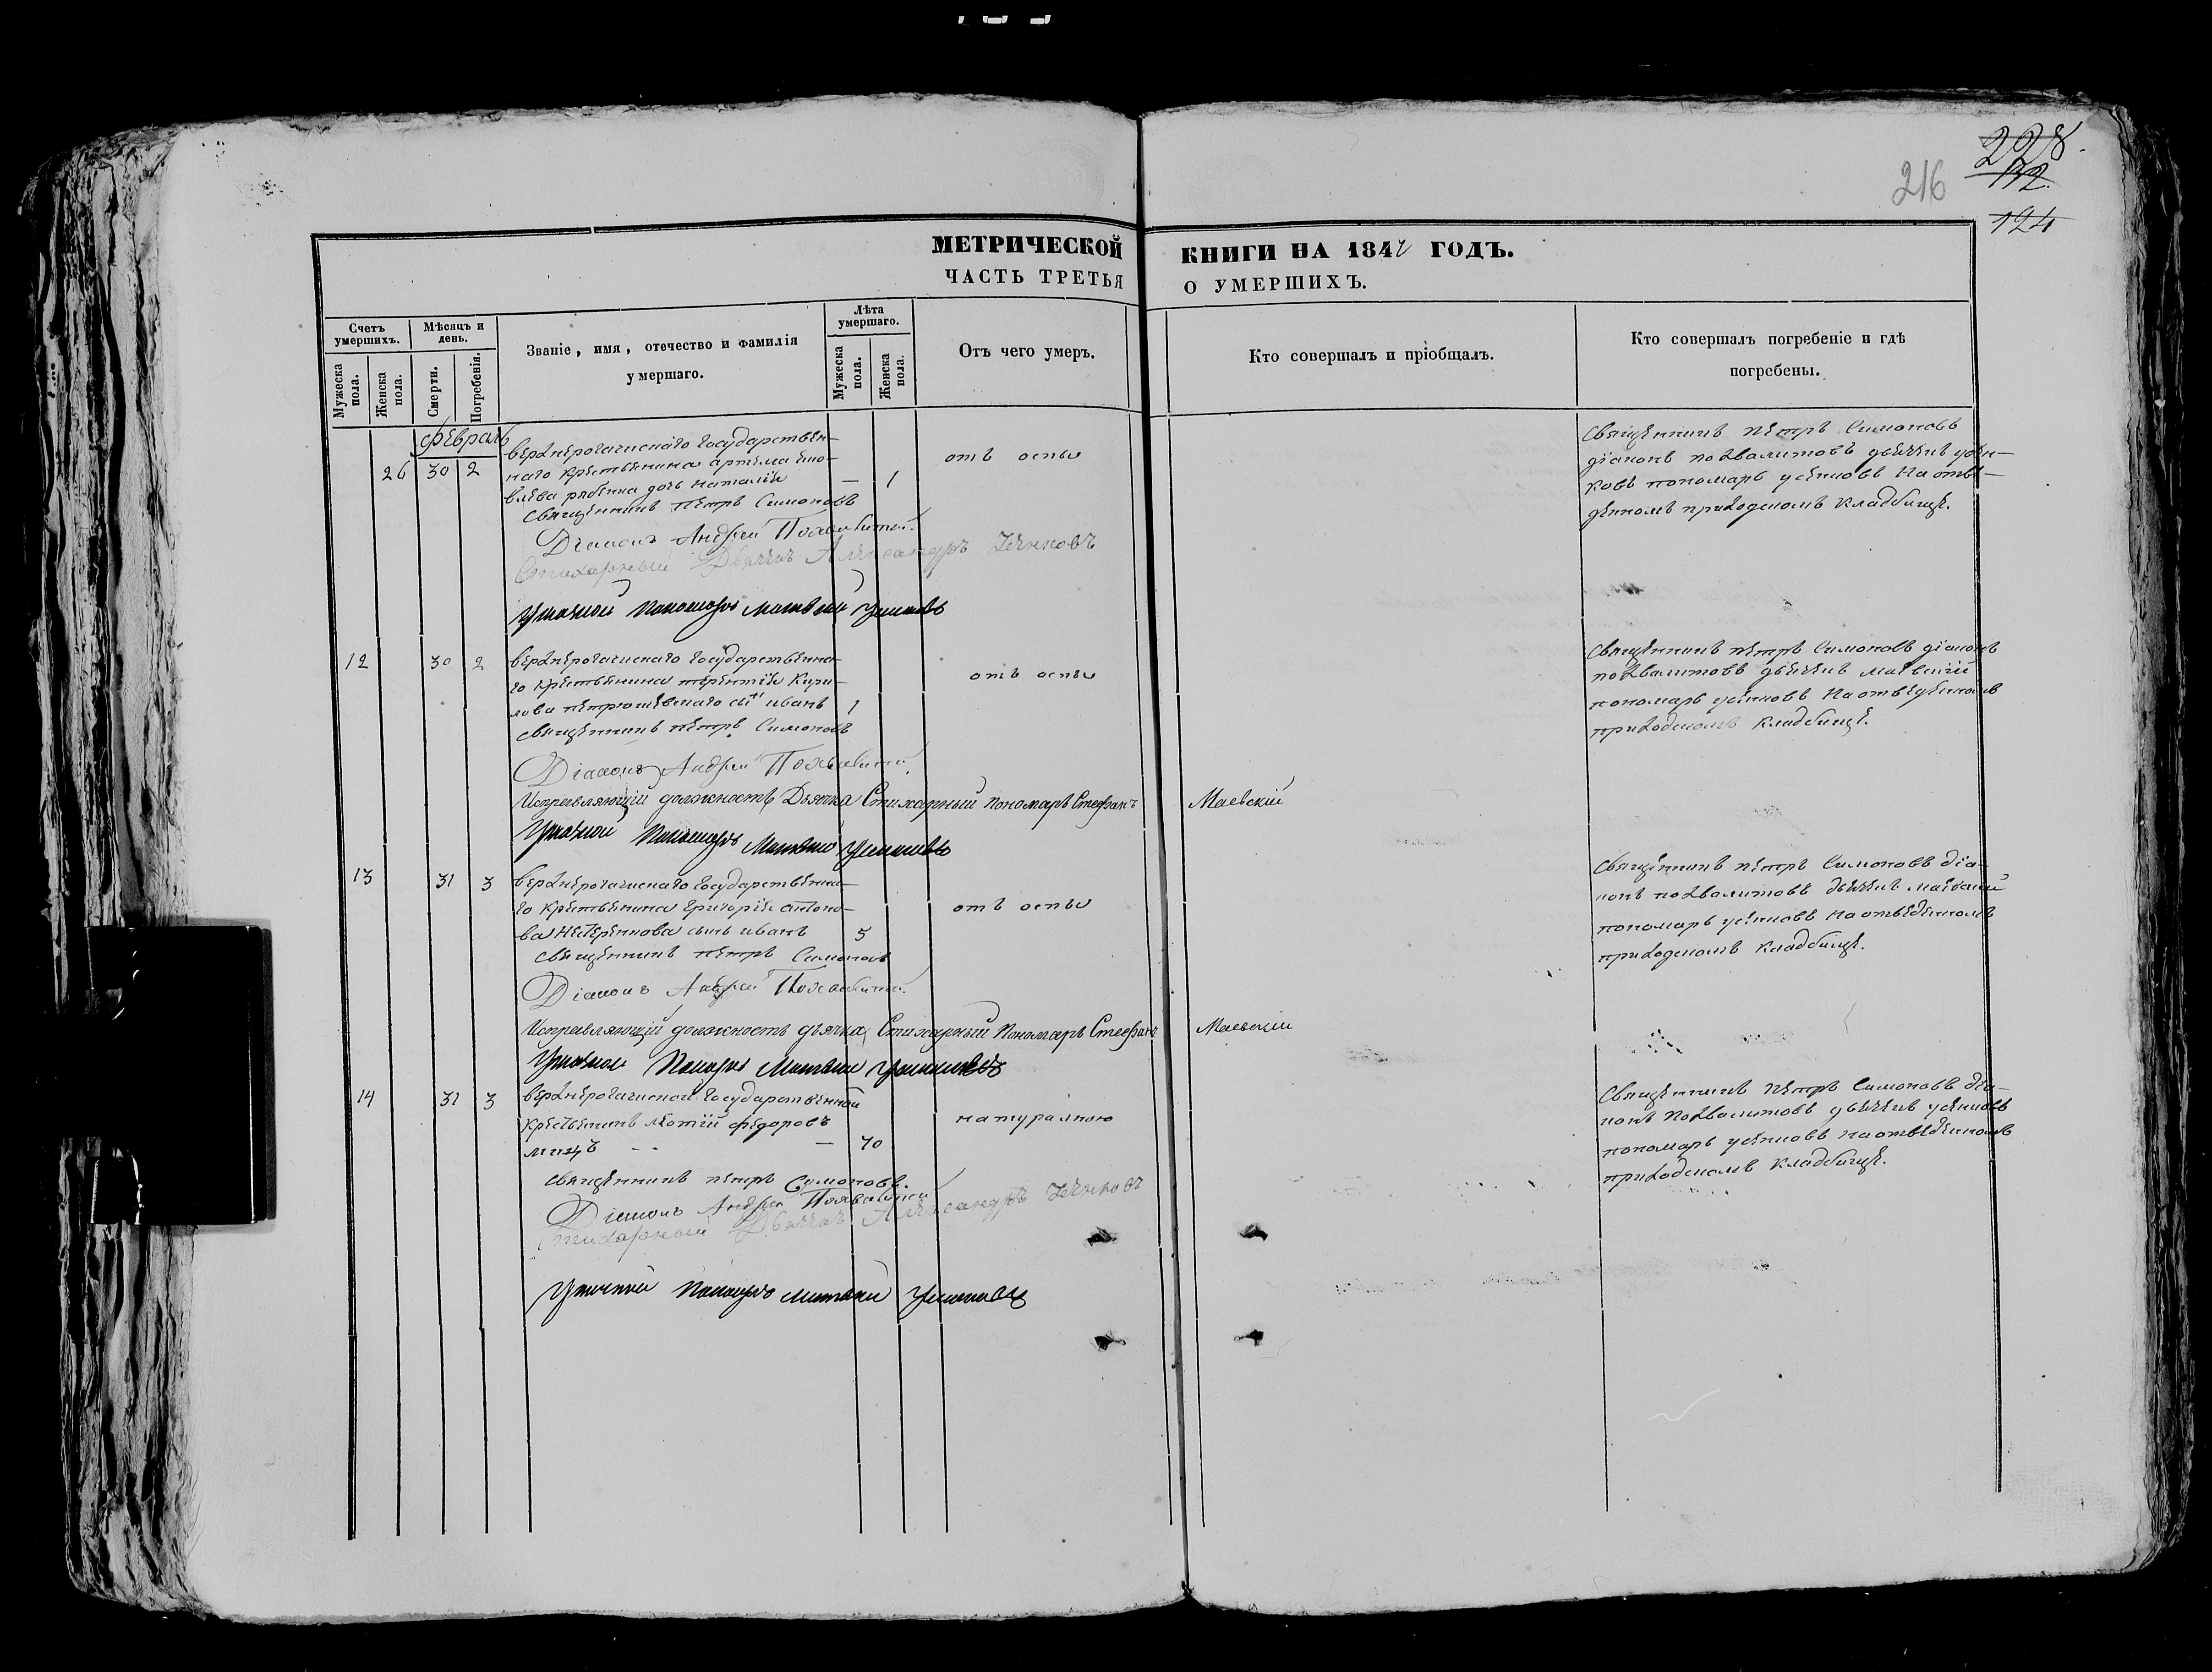 228.
132
216
124
МЕТРИЧЕСКОЙ КНИГИ НА 1842 ГОДЪ.
ЧАСТЬ ТРЕТЬЯ О УМЕРШИХЪ.
Счетъ умершихъ.
Мужеска пола.
Женска пола.
Мѣсяцъ и день.
Смерти.
Погребенія.
Званіе, имя, отечество и фамилія
умершаго.
Лѣта умершаго.
Мужеска пола.
Женска пола.
Отъ чего умеръ.
Кто совершалъ и пріобщалъ.
Кто совершалъ погребеніе и гдѣ
погребены.
февраль
26 30 2
верхнерогачискаго государствен-
наго крестьянина артема
дочь наталія — 1
отъ оспы
священникъ петръ Симоновъ
Діаконъ Андрей Похвалитовъ
Стихарный Дьячекъ Александръ
Пономарь Матвей Усенковъ
Священникъ петръ Симоновъ
діаконъ похвалитовъ дьячекъ усен-
ковъ пономарь усенковъ на отве-
денномъ приходскомъ кладбище.
12 30 2
верхнерогачискаго государственна-
го крестьянина терентія Кири-
лова петрюшевскаго сынъ иванъ 1
отъ оспы
священникъ петръ Симоновъ
Діаконъ Андрей Похвалитовъ
Исправляющій должность Дьячка Стихарный пономарь Стефанъ Маевскій
Пономарь Матвей Усенковъ
Священникъ петръ Симоновъ діаконъ
похвалитовъ дьячекъ маевскій
пономарь усенковъ на отведенномъ
приходскомъ кладбище.
13 31 3
верхнерогачискаго государственна-
го крестьянина григорія антоно-
ва Нестеренкова сынъ иванъ 5
отъ оспы
священникъ петръ Симоновъ
Діаконъ Андрей Похвалитовъ
Исправляющій должность дьячка Стихарный Пономарь Стефанъ Маевскій
Пономарь Матвей Усенковъ
Священникъ петръ Симоновъ діа-
конъ похвалитовъ дьячекъ маевскій
пономарь усенковъ на отведенномъ
приходскомъ кладбище.
14 31 3
верхнерогачиской государственной
крестьянинъ федоровъ
— 70
натурально
священникъ петръ Симоновъ.
Діаконъ Андрей Похвалитовъ
Стихарный Дьячекъ Александръ
Пономарь Матвей Усенковъ
Священникъ петръ Симоновъ діа-
конъ Похвалитовъ дьячекъ усенковъ
пономарь усенковъ на отведенномъ
приходскомъ кладбище.